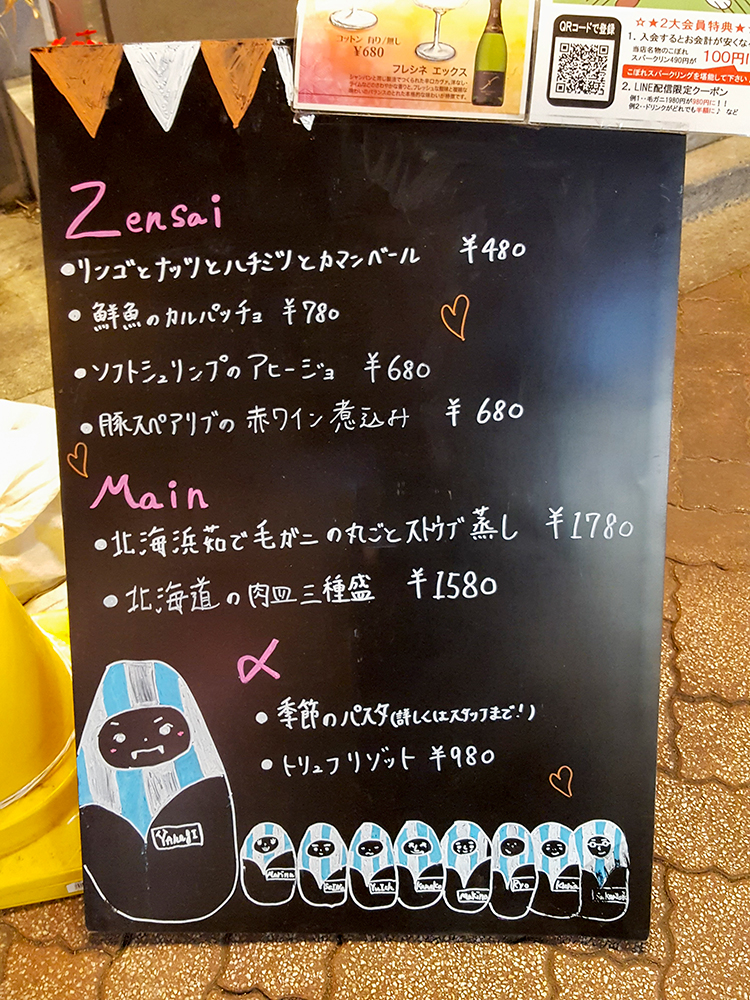 コットン 有り/無し
¥680
フレシネ エックス
QRコードで登録
☆★2大会員特典★
1. 入会するとお会計が安くな
当店名物のこぼれ
スパークリン490円が 100円
こぼれスパークリングを堪能して下さい
2. LINE配信限定クーポン
例1・・毛ガニ1980円が980円に！！
例2・・ドリンクがどれでも半額に♪ など
Zensai
・リンゴとナッツとハチミツとカマンベール ¥480
・鮮魚のカルパッチョ ¥780
・ソフトシュリンプのアヒージョ ¥680
・豚スペアリブの赤ワイン煮込み ¥680
Main
・北海浜茹で毛ガニの丸ごとストウブ蒸し ¥1780
・北海道の肉皿三種盛 ¥1580
α
・季節のパスタ(詳しくはスタッフまで!)
・トリュフリゾット ¥980
YAKUJI
Marina
Yuich
Kanako
Makina
Ryo